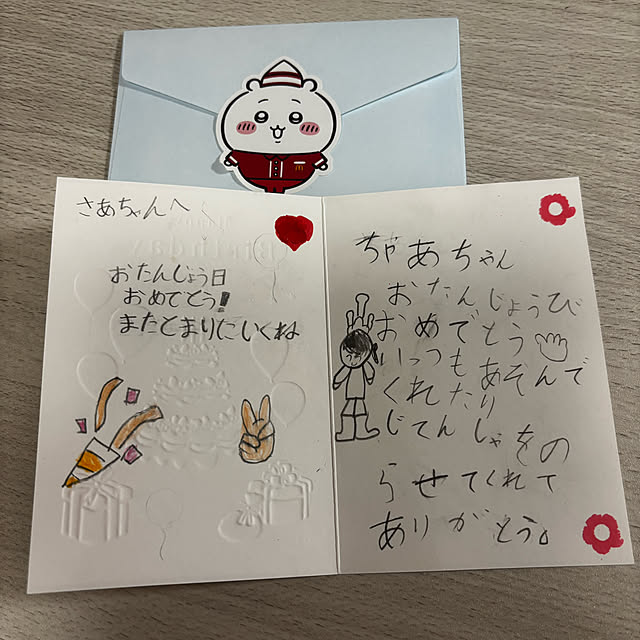 さあちゃんへ
Birthday
おたんじょう日
おめでとう!
またとまりにいくね
ちゃあちゃん
おたんじょうび
おめでとう
いっつもあそんで
くれたり
じてんしゃをの
らせてくれて
ありがとう。